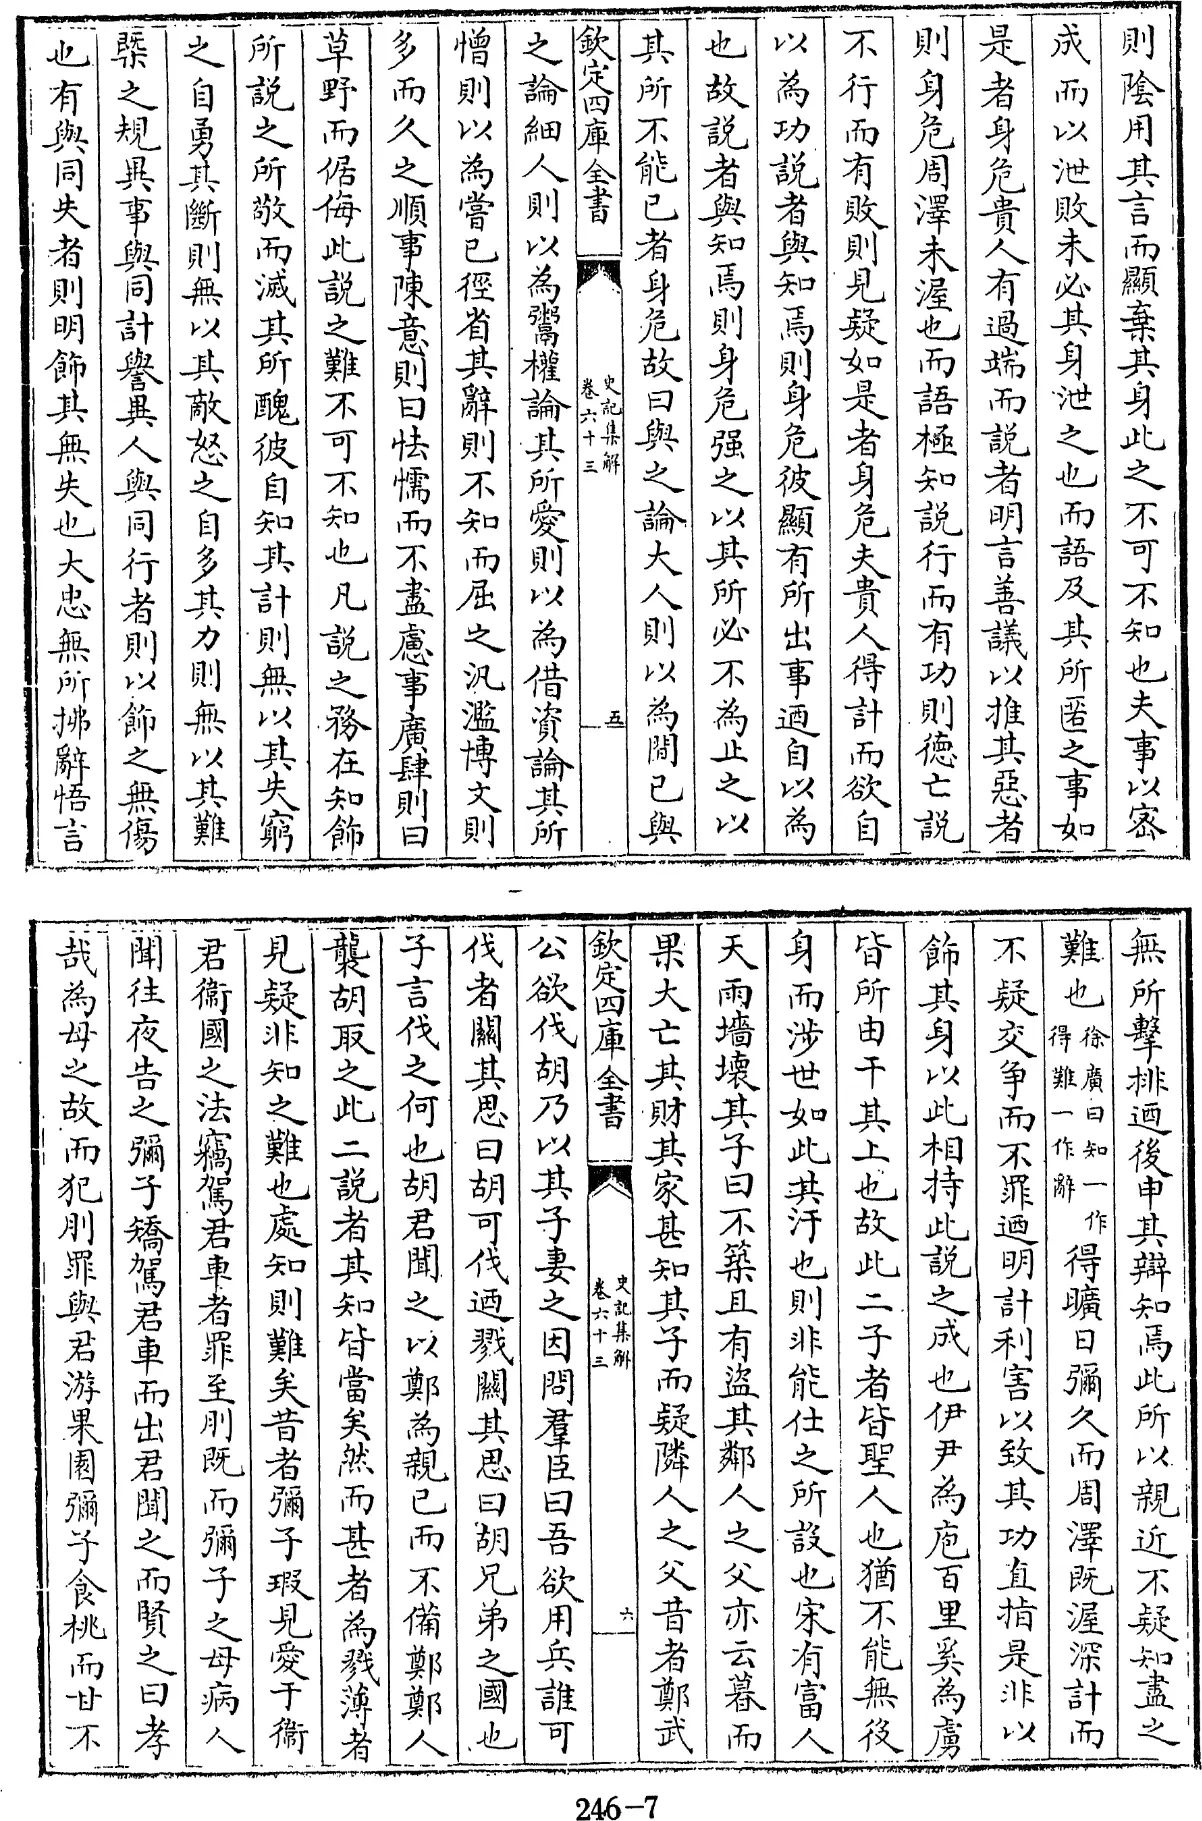 則陰用其言而顯棄其身此之不可不知也夫事以密
成而以泄敗未必其身泄之也而語及其所匿之事如
是者身危貴人有過端而說者明言善議以推其惡者
則身危周澤未渥也而語極知說行而有功則德亡說
不行而有敗則見疑如是者身危夫貴人得計而欲自
以為功說者與知焉則身危彼顯有所出事迺自以為
也故說者與知焉則身危强之以其所必不為止之以
其所不能已者身危故曰與之論大人則以為間已與
欽定四庫全書
史記集解
卷六十三
五
之論細人則以為鬻權論其所愛則以為借資論其所
憎則以為嘗已徑省其辭則不知而屈之汎濫博文則
多而久之順事陳意則曰怯懦而不盡慮事廣肆則曰
草野而倨侮此說之難不可不知也凡說之務在知飾
所說之所敬而滅其所醜彼自知其計則無以其失窮
之自勇其斷則無以其敵怒之自多其力則無以其難
槩之規異事與同計譽異人與同行者則以飾之無傷
也有與同失者則明飾其無失也大忠無所拂辭悟言
無所擊排迺後申其辯知焉此所以親近不疑知盡之
難也
徐廣曰知一作
得難一作辭
得曠日彌久而周澤既渥深計而
不疑交争而不罪迺明計利害以致其功直指是非以
飾其身以此相持此說之成也伊尹為庖百里奚為虜
皆所由干其上也故此二子者皆聖人也猶不能無役
身而涉世如此其汙也則非能仕之所設也宋有富人
天雨墻壞其子曰不築且有盜其鄰人之父亦云暮而
果大亡其財其家甚知其子而疑隣人之父昔者鄭武
欽定四庫全書
史記集解
卷六十三
六
公欲伐胡乃以其子妻之因問羣臣曰吾欲用兵誰可
伐者關其思曰胡可伐迺戮關其思曰胡兄弟之國也
子言伐之何也胡君聞之以鄭為親已而不備鄭鄭人
襲胡取之此二說者其知皆當矣然而甚者為戮薄者
見疑非知之難也處知則難矣昔者彌子瑕見愛于衛
君衛國之法竊駕君車者罪至刖既而彌子之母病人
聞往夜告之彌子矯駕君車而出君聞之而賢之曰孝
哉為母之故而犯刖罪與君游果園彌子食桃而甘不
246-7